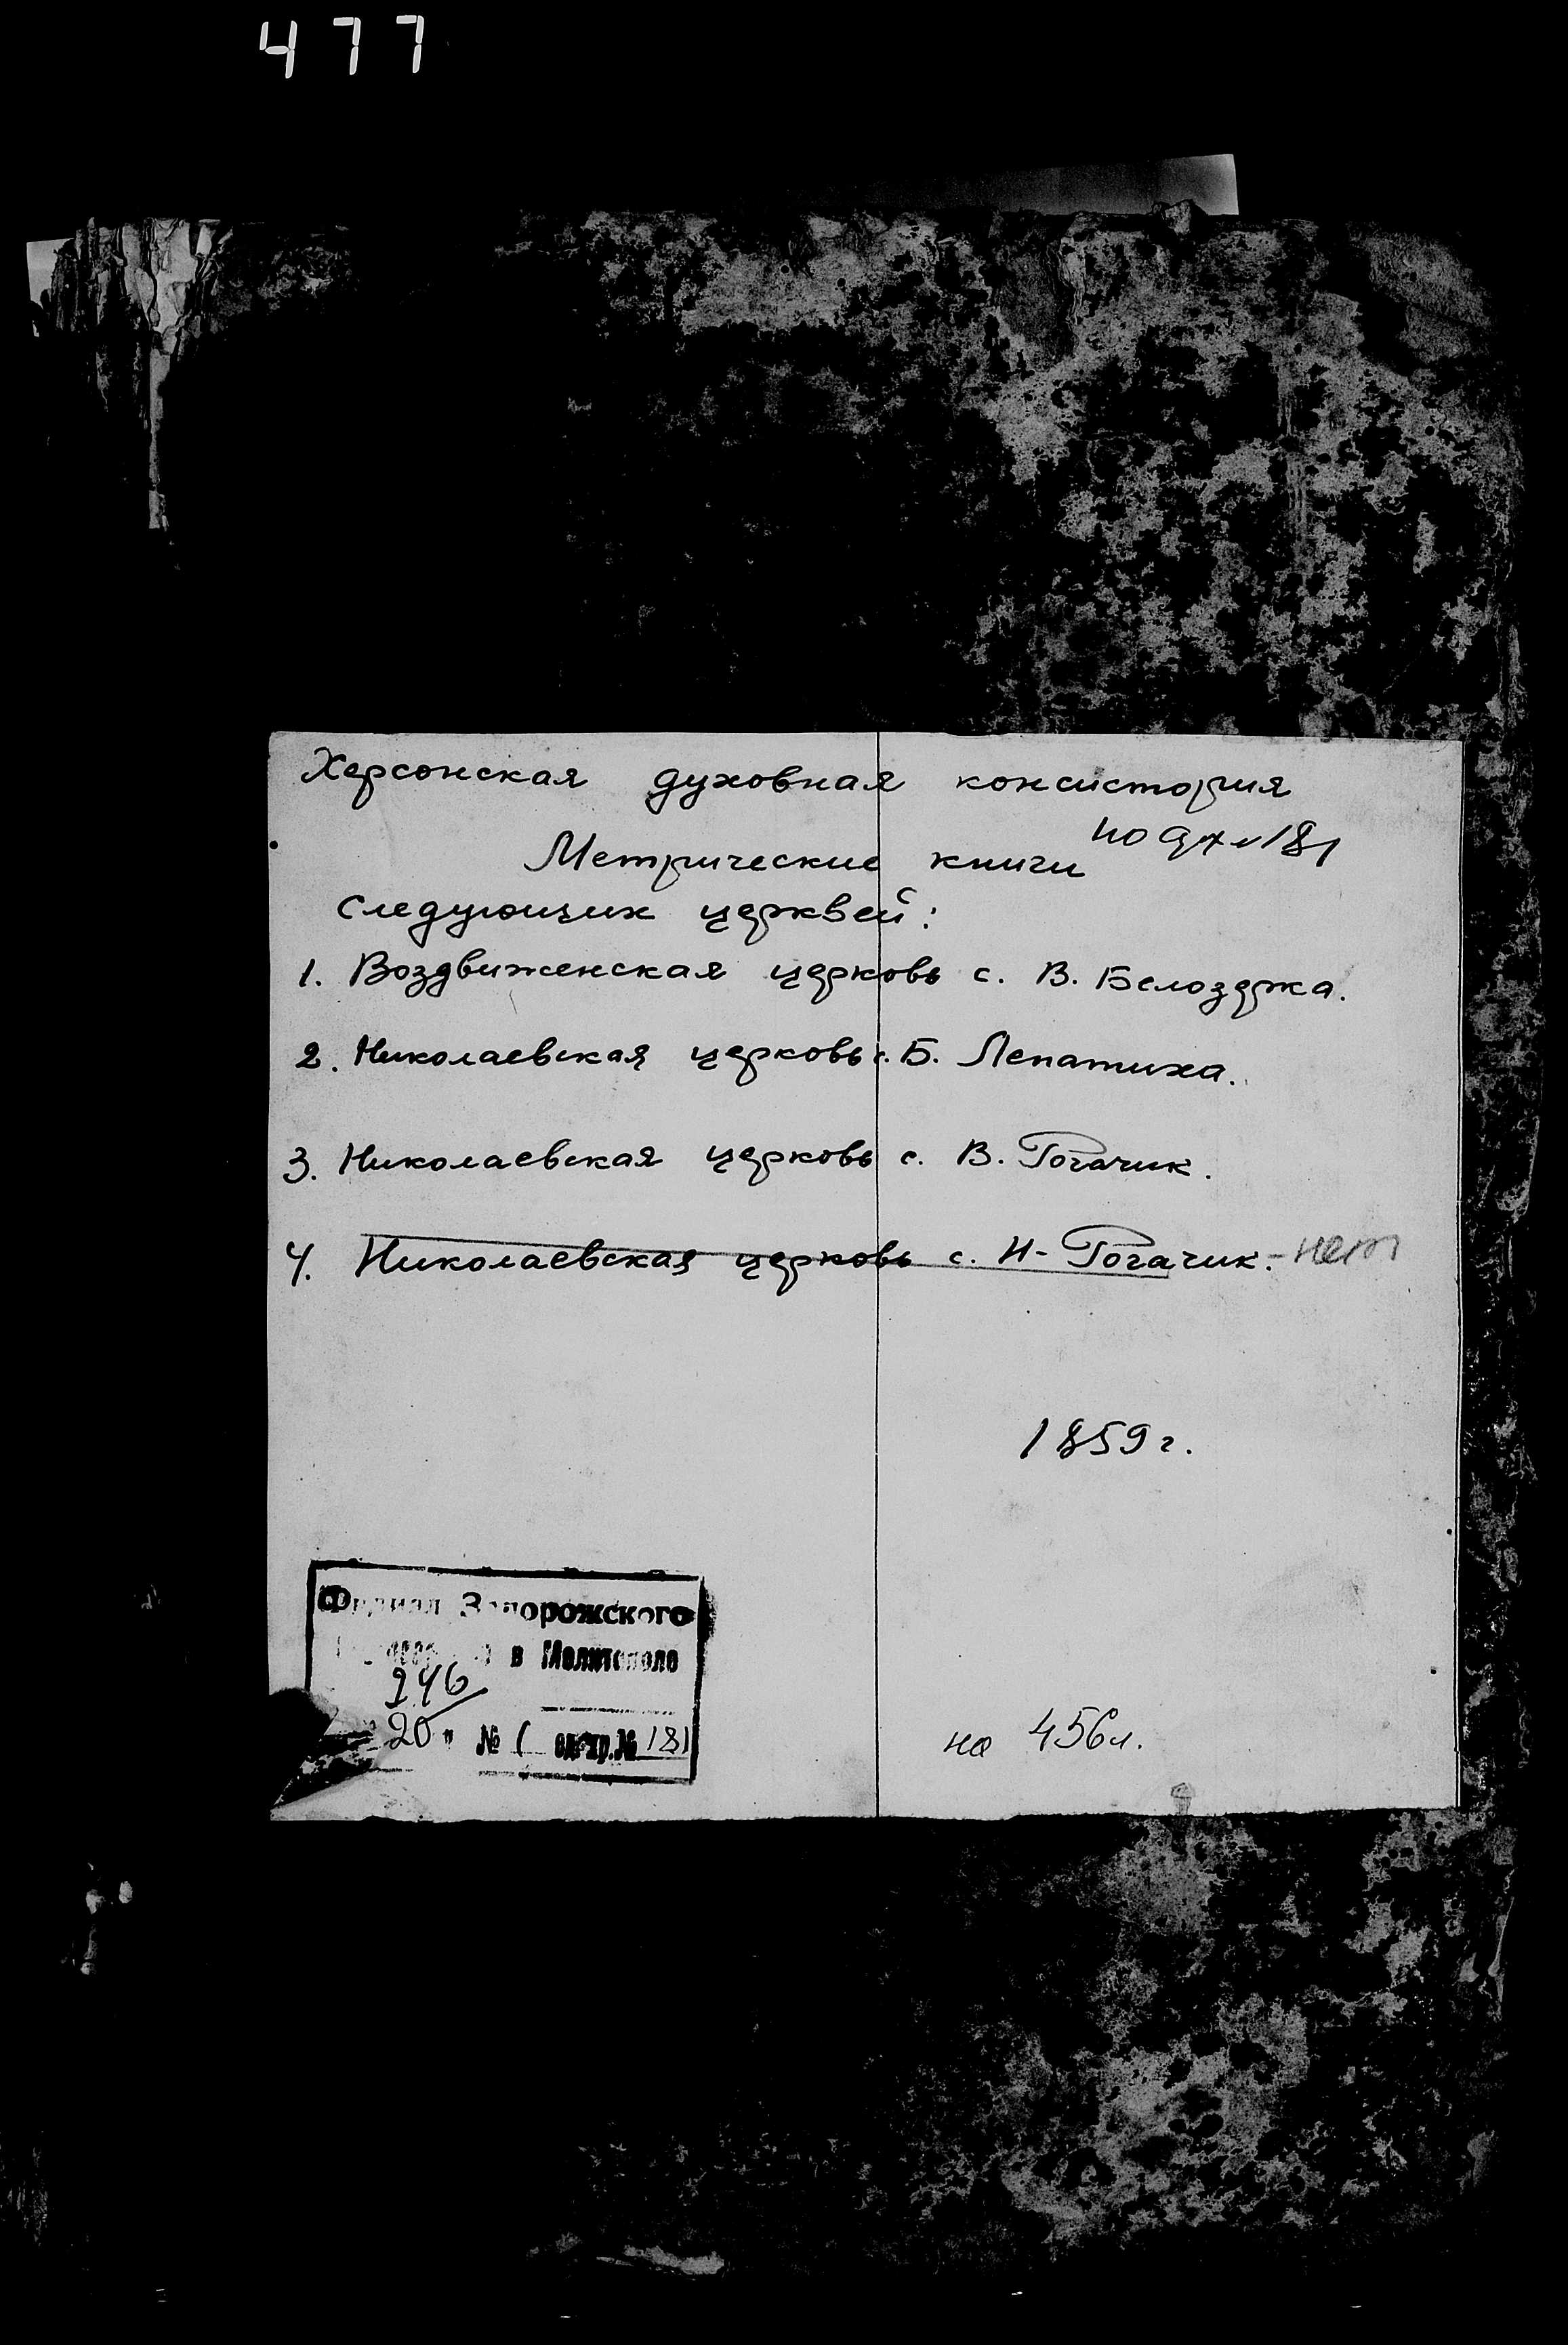 477
Херсонская духовная консистория
Метрические книги
следующих церквей:
1. Воздвиженская церковь с. В. Белозерка.
2. Николаевская церковь с. Б. Лепатиха.
3. Николаевская церковь с. В. Рогачик.
4. Николаевская церковь с. Н-Рогачик. - нет
1859 г.
Филиал Запорожского
в Мелитополе
246
20 № 1 ед.хр.№ 181
на 456 л.